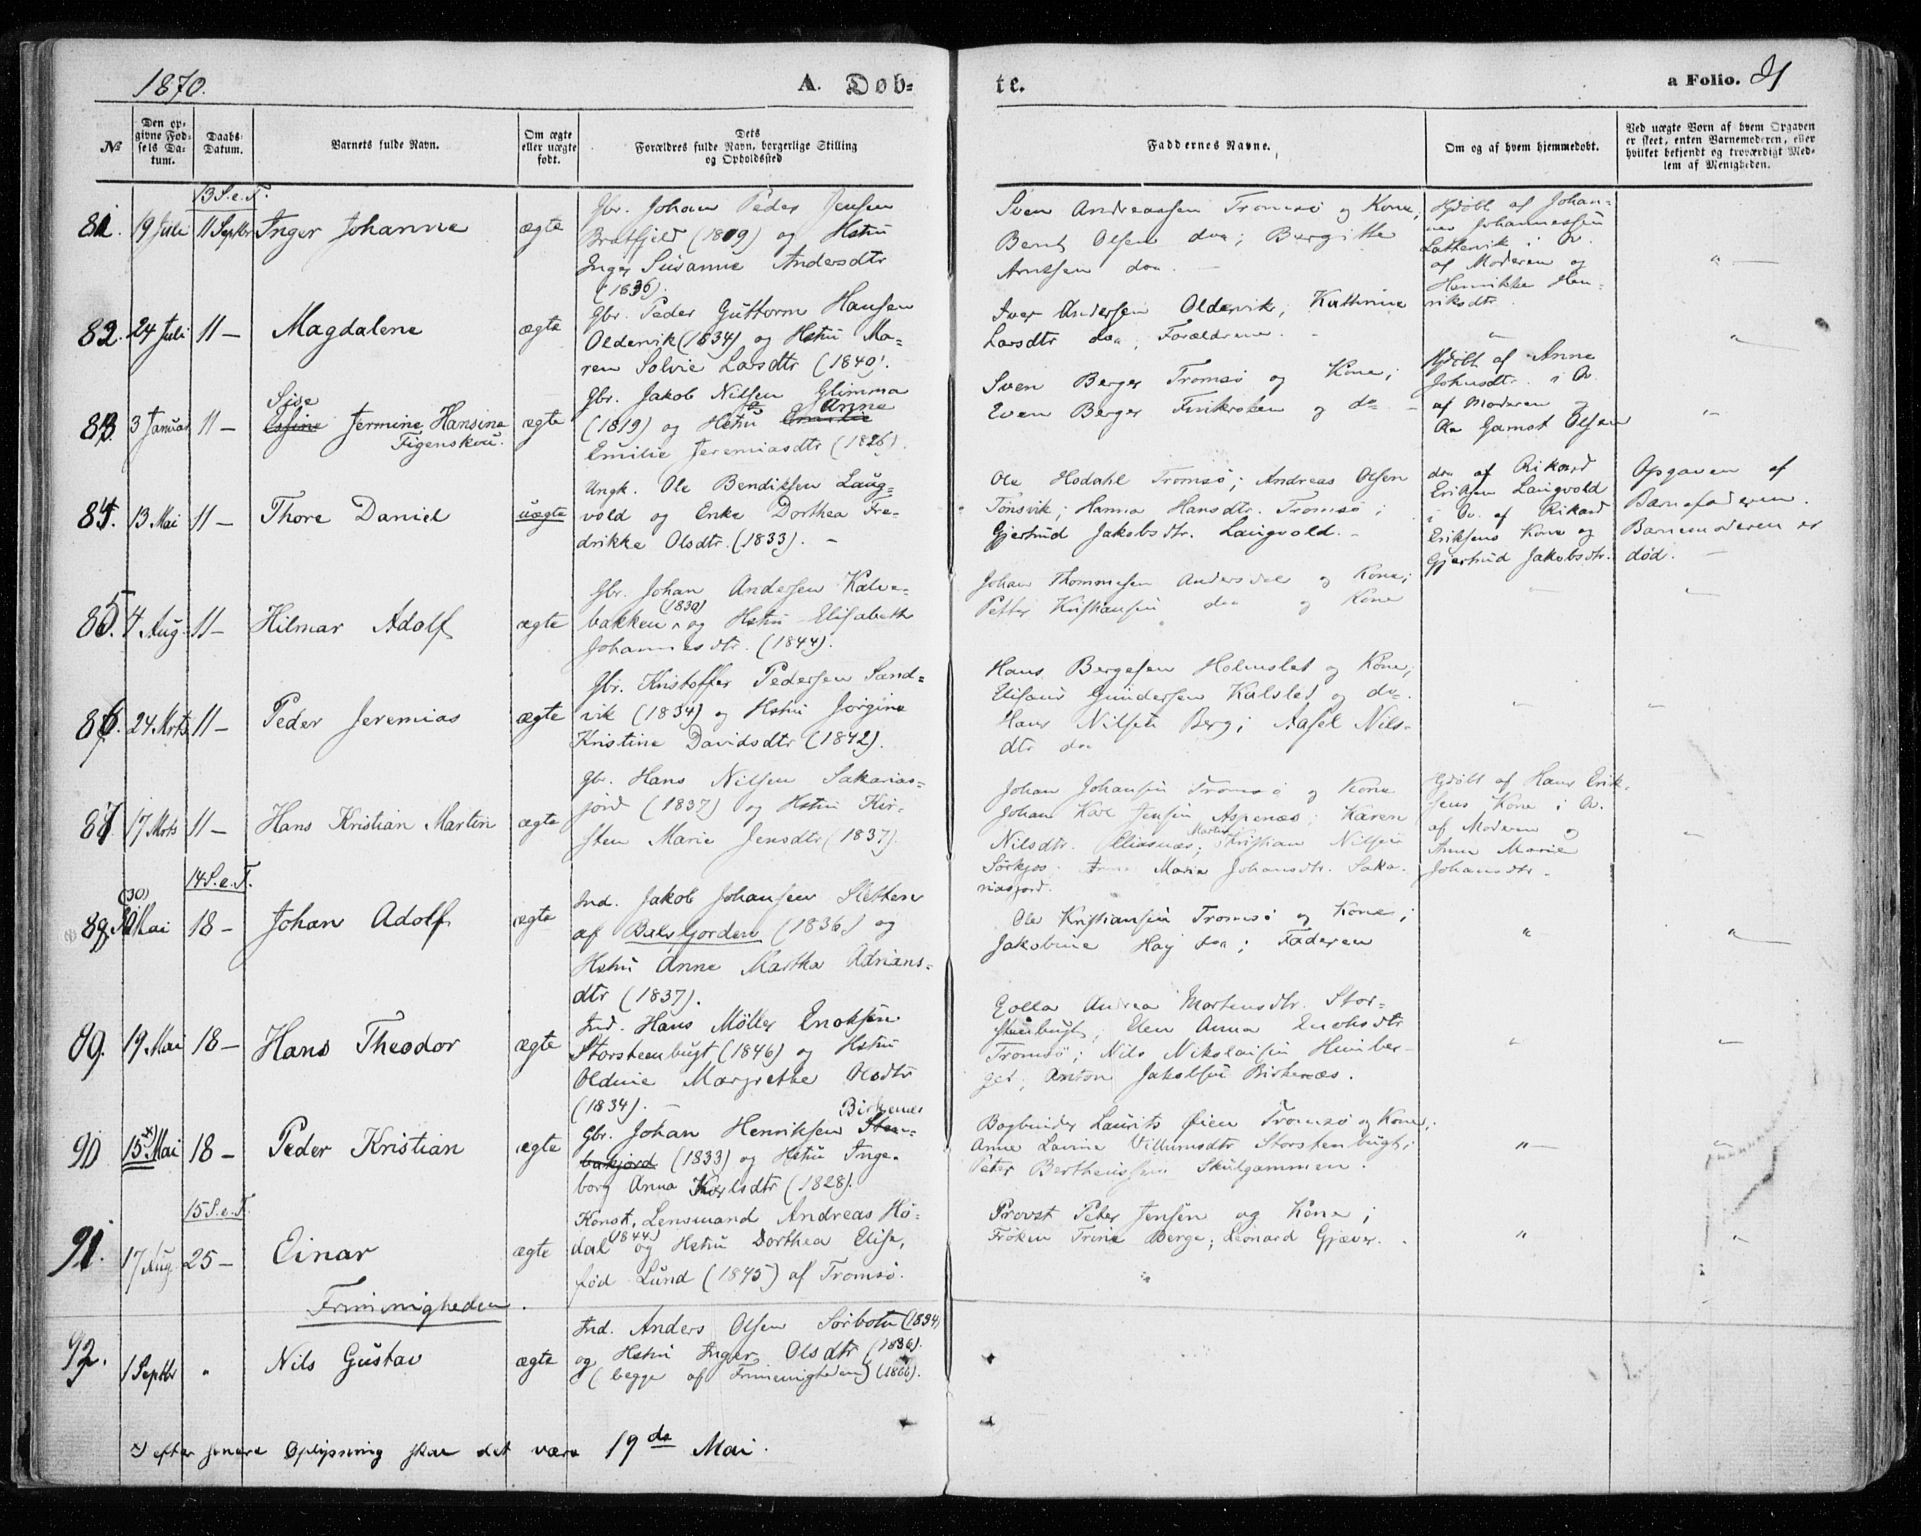 1870.
A. Døb-
te.
a Folio. 21
№
Den op-
givne Fød-
sels Da-
tum.
Daabs-
Datum.
Barnets fulde Navn.
Om ægte
eller uægte
født.
Dets
Forældres fulde Navn, borgerlige Stilling
og Opholdssted
Faddernes Navne.
Om og af hvem hjemmedøbt.
Ved uægte Børn af hvem Opgaven
er skeet, enten Barnemoderen, eller
hvilket bekjendt og troværdigt Med-
lem af Menigheden.
13 S. e. T.
81. 19 Juli 11 Septbr Inger Johanne ægte
Gbr. Johan Peder Jensen
Bratfjeld (1819) og Hstru
Inger Susanne Andersdtr
(1836).
Sven Andreassen Tromsø og Kone;
Bent Olsen do; Bergitte
Arntsen do. -
Hjdøbt af Johan-
nes Johannessen
Lattervik i Ov.
af Moderen og
Henrikke Hen-
riksdtr.
" -
82. 24 Juli 11 - Magdalene ægte
Gbr. Peder Guttorm Hansen
Oldervik (1834) og Hstru Ma-
ren Solvie Larsdtr (1840).
Iver Andersen Oldervik; Kathrine
Larsdtr do; Forældrene. -
"
" -
83. 3 Januar 11 - Sise
Jermine Hansine
Figenskou. ægte
Gbr. Jakob Nilsen Glimma
(1819) og Hstru Anne
Emilie Jeremiasdtr (1826).
Sven Berger Tromsø og Kone;
Even Berger Finkroken og do -
Hjdøbt af Anne
Johnsdtr. i Ov.
af Moderen og
Ole Gamst Olsen
" -
84. 13 Mai 11 - Thore Daniel uægte
Ungk. Ole Bendiksen Laug-
vold og Enke Dorthea Fre-
drikke Olsdtr. (1833). -
Ole Hodahl Tromsø; Andreas Olsen
Tønsvik; Hanna Hansdtr. Tromsø;
Gjertrud Jakobsdtr. Langvold. -
do af Rikard
Eriksen Langvold
i Ov. af Rikard
Eriksens Kone og
Gjertrud Jakobsdtr.
Opgaven af
Barnefaderen.
Barnemoderen er
død. -
85. 4 Aug. 11 - Hilmar Adolf ægte
Gbr. Johan Andersen Kalve-
bakken (1830) og Hstru Elisabeth
Johannesdtr. (1844).
Johan Thommesen Andersdal og Kone;
Petter Kristiansen do og Kone
" -
" -
86. 24 Mrts 11 - Peder Jeremias ægte
Gbr. Kristoffer Pedersen Sand-
vik (1834) og Hstru Jørgine
Kristine Davidsdtr (1842).
Hans Bergesen Holmslet og Kone;
Elisaus Gundersen Kalslet og do.
Hans Nilsen Berg; Aasel Nils-
dtr do
" -
" -
87. 17 Mrts 11 - Hans Kristian Martin ægte
Gbr. Hans Nilsen Sakarias-
jord (1837) og Hstru Kir-
sten Marie Jensdtr (1837).
Johan Johansen Tromsø og Kone
Johan Karl Jensen Aspenæs; Karen
Nilsdtr. Eliasnæs; Martin Kristian Nilsen
Sørkjos; Anne Marie Johansdtr. Saka-
riasjord.
Hjdøbt af Hans Erik-
sens Kone i Ov.
af Moderen og
Anne Marie
Johansdtr. -
" -
14 S. e. T.
(30)
88. 30 Mai 18 - Johan Adolf ægte
Ind. Jakob Johansen Sletten
af Balsfjorden (1836) og
Hstru Anne Martha Adrians-
dtr (1837).
Ole Kristiansen Tromsø og Kone;
Jakobine Hay do; Faderen
"
" -
89. 19 Mai 18 - Hans Theodor ægte
Ind. Hans Møller Enoksen
Storsteenbugt (1846) og Hstru
Oldine Margrethe Olsdtr
(1834). -
Golla Andrea Mortensdtr. Stor-
steenbugt; Elen Anna Enoksdtr
Tromsø; Nils Nikolaisen Himber-
get; Anton Jakobsen Birkenæs.
" -
" -
90 15 x) Mai 18 - Peder Kristian ægte
Gbr. Johan Henriksen Birkenæs Sten-
bakjord (1833) og Hstru Inge-
borg Anna Karlsdtr (1828).
Bogbinder Laurits Øien Tromsø og Kone;
Anne Lavine Villumsdtr Storstenbugt;
Peter Bertheussen Skulgammen.
" -
" -
15 S. e. T.
91. 17 Aug. 25 - Einar ægte
Konst. Lensmand Andreas Hø-
dal (1844) og Hstru Dorthea Elise,
fød Lund (1845) af Tromsø.
Provst Peter Jensen og Kone;
Frøken Trine Berge; Leonard Gjæver. .
"
" -
Frimenigheden.
92. 1 Septbr " Nils Gustav ægte
Ind. Anders Olsen Sørbotn (1834)
og Hstru Inger Olsdtr (1836).
(begge af Frimenigheden) (1866).
x) efter senere Oplysning skal det være 19de Mai.